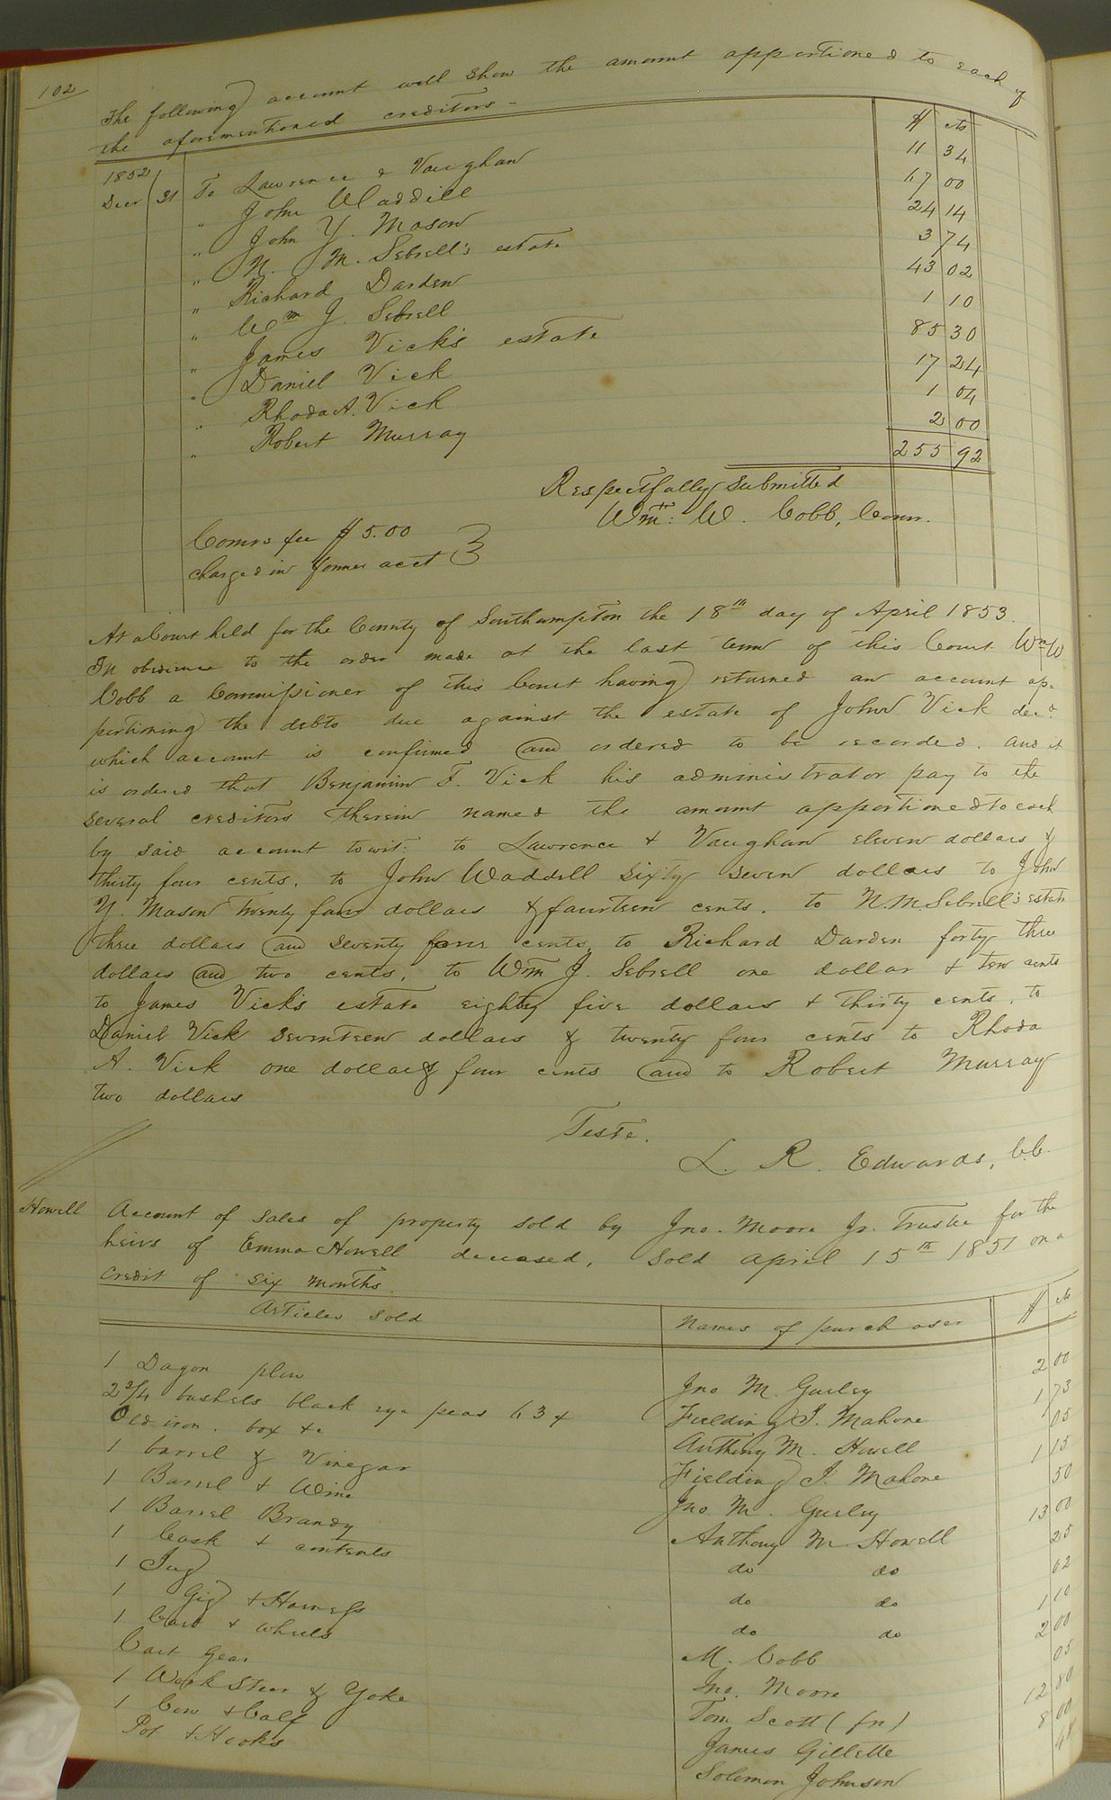 102
The following account will show the amount apportioned to each of
the aforementioned creditors -
$ cts
1852
Decr 31 To Lawrence & Vaughan 11 34
" John Waddill 67 00
" John Y. Mason 24 14
" N. M. Sebrell's estate 3 74
" Richard Darden 43 02
" Wm J. Sebrell 1 10
" James Vick's estate 85 30
" Daniel Vick 17 24
" Rhoda A. Vick 1 04
" Robert Murray 2 00
255 92
Respectfully Submitted
Wm: W. Cobb, Comr.
Comrs fee $5.00
charged in former acct
At a Court held for the County of Southampton the 18th day of April 1853.
In obedience to the order made at the last term of this Court Wm W
Cobb a Commissioner of this Court having returned an account ap-
portioning the debts due against the estate of John Vick decd.
which account is confirmed and ordered to be recorded. and it
is ordered that Benjamin F. Vick his administrator pay to the
several creditors therein named the amount apportioned to each
by said account towit: to Lawrence & Vaughan eleven dollars &
thirty four cents. to John Waddill Sixty Seven dollars to John
Y. Mason twenty four dollars & fourteen cents. to N. M. Sebrell's estate
three dollars and Seventy four cents, to Richard Darden forty three
dollars and two cents, to Wm J. Sebrell one dollar & ten cents
to James Vick's estate eighty five dollars & thirty cents, to
Daniel Vick Seventeen dollars & twenty four cents to Rhoda
A. Vick one dollar & four cents and to Robert Murray
two dollars
Teste.
L. R. Edwards, C.C.
Howell Account of Sales of property sold by Jno. Moore Jr. Trustee for the
heirs of Emma Howell deceased, Sold april 15th 1851 on a
Credit of Six months.
Articles Sold Names of purchaser $ cts
1 Dagon plow Jno M. Gurley 2 00
2 3/4 bushels black eye peas 63 Fielding J. Mahone 1 73
Old iron. box &c Anthony M. Howell 05
1 barrel & Vinegar Fielding J. Mahone 1 15
1 Barrel & Wine Jno M. Gurley 50
1 Barrel Brandy Anthony M Howell 13 00
1 Cask & contents do do 25
1 Jug do do 62
1 Gig & Harness do do 1 10
1 Cart & wheels M. Cobb 2 00
Cart Gear Jno. Moore 05
1 Work Steer & Yoke Tom Scott (fn) 12 80
1 Cow & Calf James Gillette 8 00
Pot & Hooks Solomon Johnson